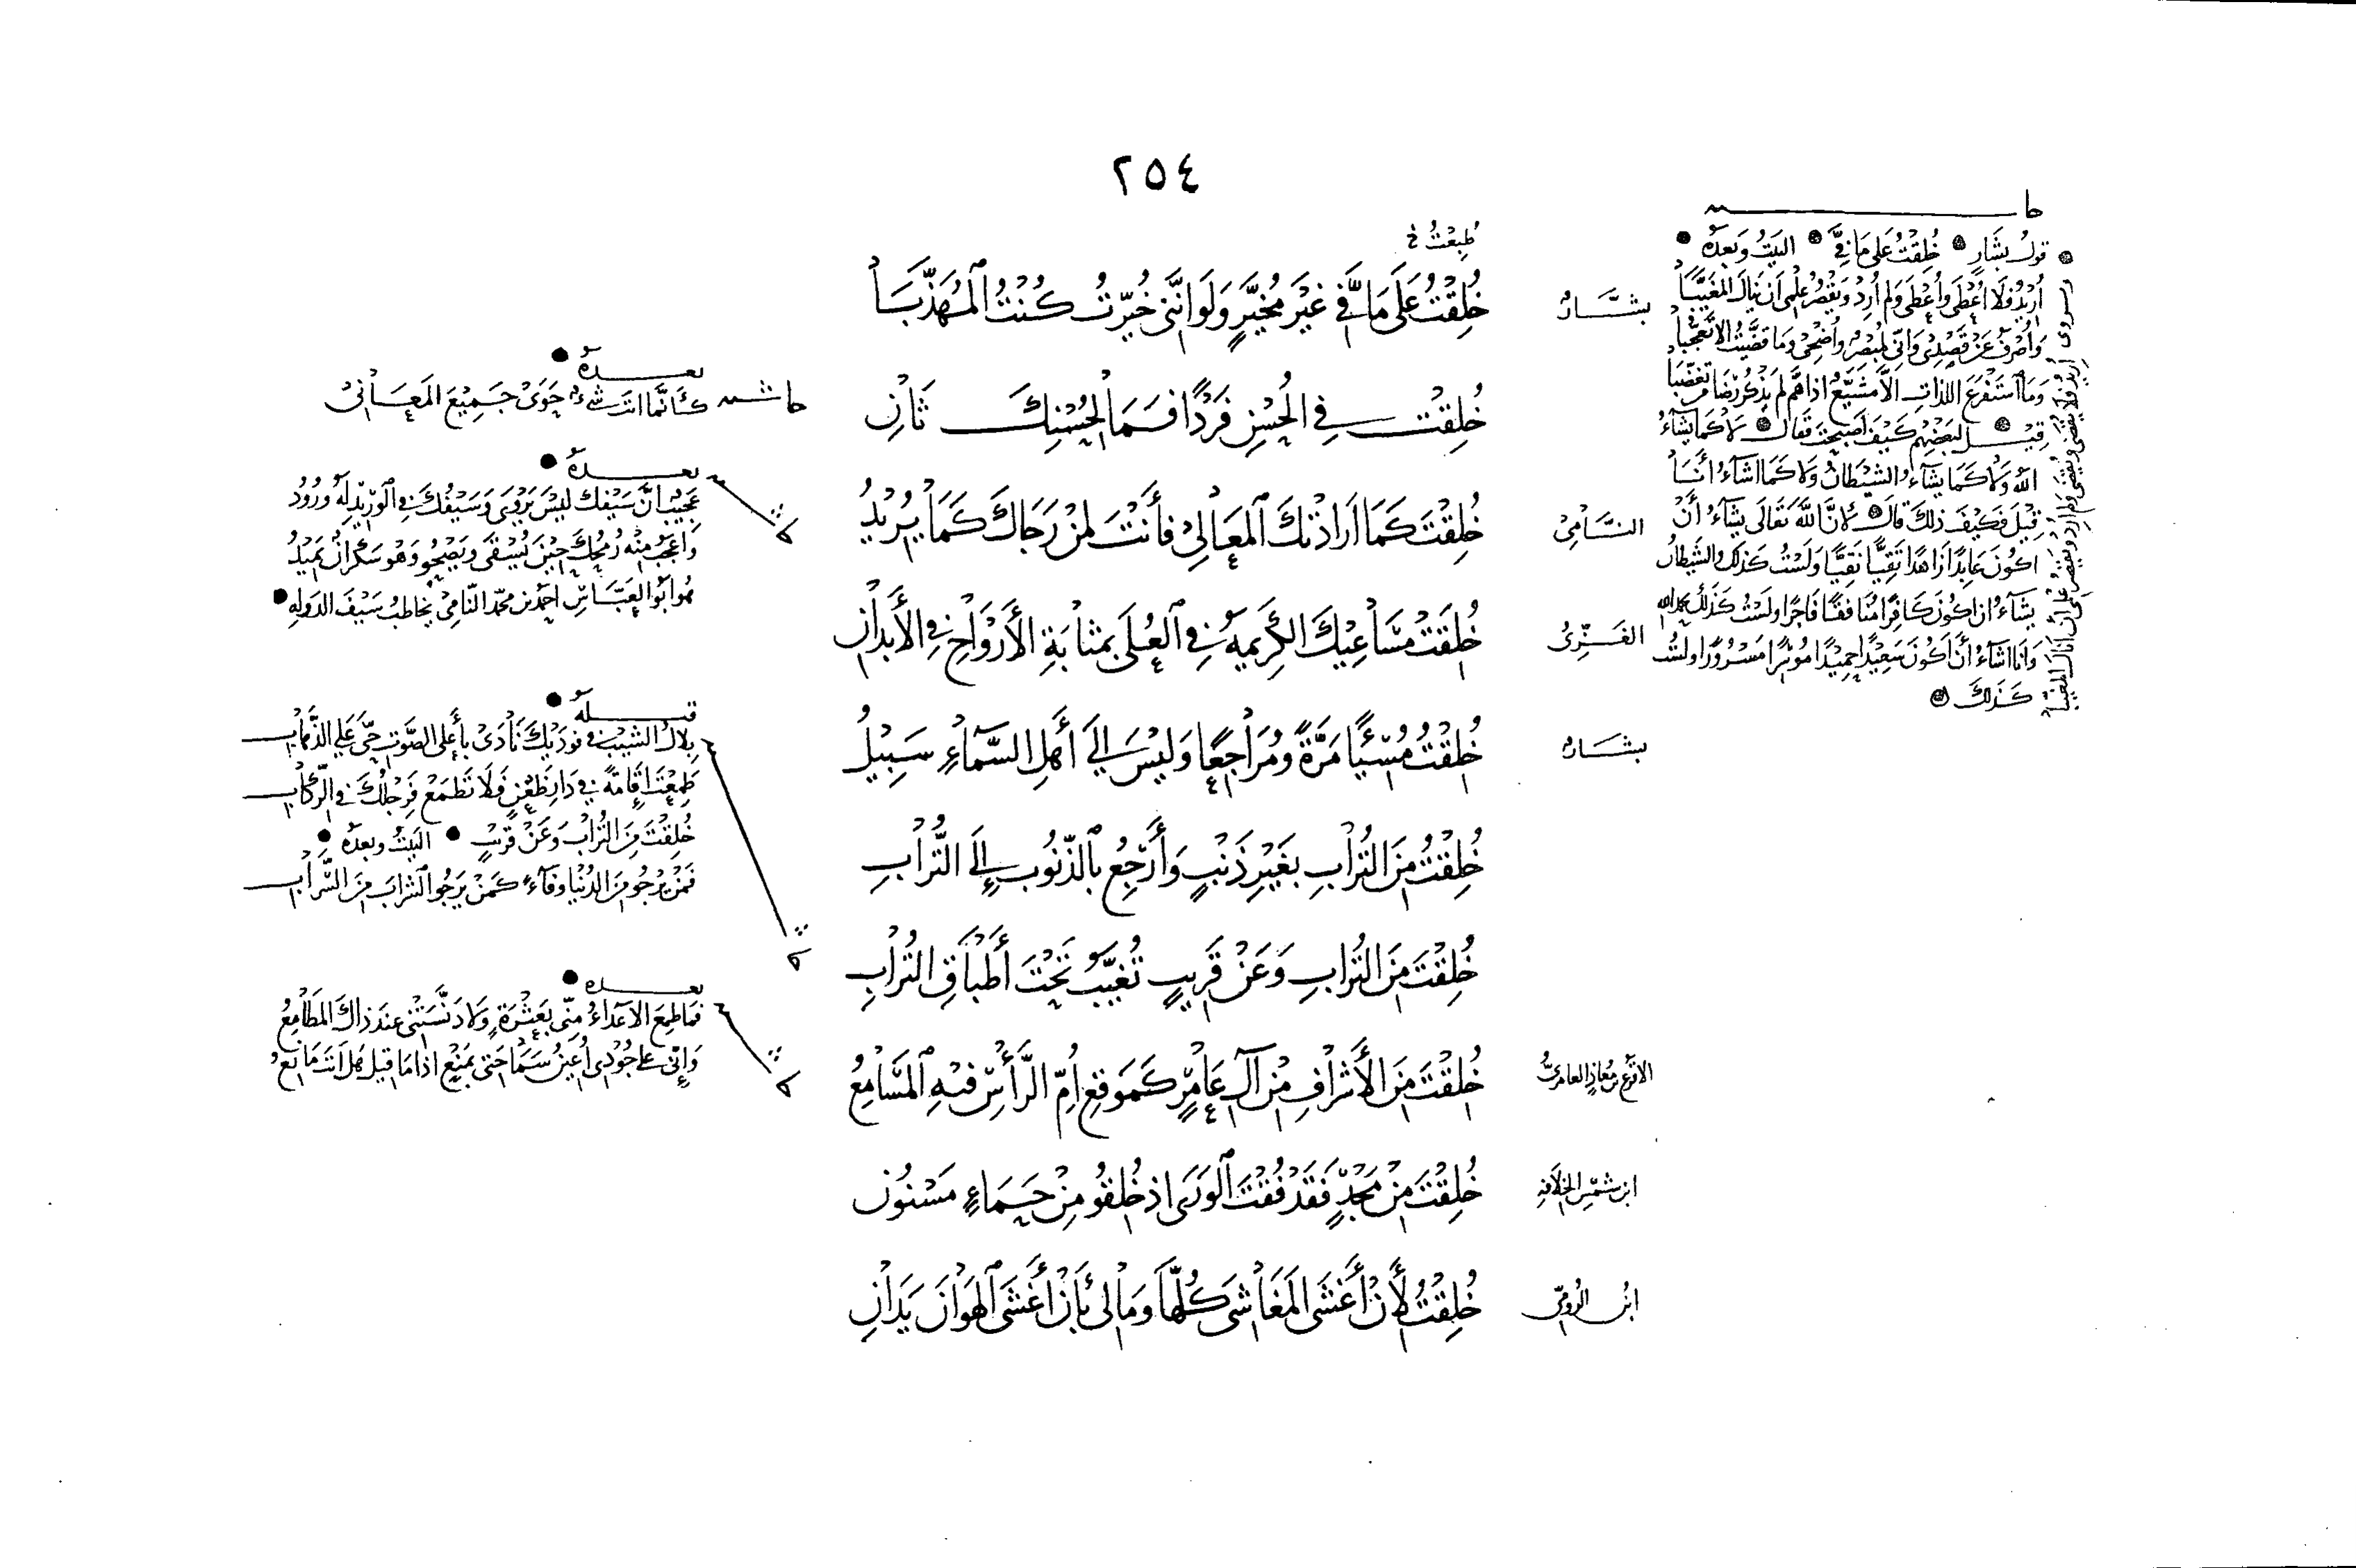 ٢٥٤
طُبِعْتُ
بَشَّارُ
خُلِقْتُ عَلَى مَا فِيَّ غَيْرَ مُخَيَّرٍ وَلَوْ أَنَّنِي خُيِّرْتُ كُنْتُ الْمُهَذَّبَا
خُلِقْتَ فِي الْحُسْنِ فَرْدًا فَمَا لِحُسْنِكَ ثَانِ
النَّامِيْ
خُلِقْتَ كَمَا أَرَادَتْكَ الْمَعَالِيْ فَأَنْتَ لِمَنْ رَجَاكَ كَمَا يُرِيْدُ
الْغَزِّيُ
خُلِقَتْ مَسَاعِيْكَ الْكَرِيمَةُ فِي الْعُلَى بِمَثَابَةِ الْأَرْوَاحِ فِي الْأَبْدَانِ
بَشَارُ
خُلِقْتُ مُسِيْئًا مَرَّةً وَمُرَاجِعًا وَلَيْسَ إِلَى أَهْلِ السَّمَاءِ سَبِيْلُ
خُلِقْتُ مِنَ التُّرَابِ بِغَيْرِ ذَنْبٍ وَأَرْجِعُ بِالذُّنُوبِ إِلَى التُّرَابِ
خُلِقْتَ مِنَ التُّرَابِ وَعَنْ قَرِيبٍ تُغَيَّبُ تَحْتَ أَطْبَاقِ التُّرَابِ
الأقرع بن مُعاذ العامريُّ
خُلِقْتُ مِنَ الْأَشْرَافِ مِنْ آلِ عَامِرٍ كَمَوْقِعِ أُمِّ الرَّأْسِ فِيْهِ الْمَسَامِعُ
ابن شمس الخلافه
خُلِقْتَ مِنْ مَجْدٍ فَقَدْ فُقْتَ الْوَرَى إِذْ خُلِقُو مِنْ حَمَاءٍ مَسْنُونِ
ابن الرُّومِيّ
خُلِقْتُ لِأَنْ أَغْشَى الْمَغَاشِيَ كُلَّهَا وَمَا لِي بِأَنْ أَغْشَى الْهَوَانَ يَدَانِ
حاشية
قول بَشَّارٍ خُلِقْتُ عَلَى مَا فِيَّ البَيْتُ وَبَعْدَهُ
أُرِيْدُ فَلَا أُعْطَى وَأُعْطَى وَلَمْ أُرِدْ وَيَقْصُرُ عِلْمِي أَنْ يَنَالَ الْمُغَيَّبَا
وَأُصْرَفُ عَنْ قَصْدِيْ وَإِنِّي لَمُبْصِرُ وَأُضْحِيْ وَمَا قَضَّيْتُ إِلَّا تَعَجُّبَا
وَمَا اسْتَفْرَغَ اللَّذَاتِ إِلَّا مُشَيَّعُ إِذَا هَمَّ لَمْ يَذْكُرْ رِضَا مَنْ تَغَضَّبَا
قِيْلَ لِبَعْضِهِمْ كَيْفَ أَصْبَحْتَ فَقَالَ لَا كَمَا يَشَاءُ
اللهُ وَلَا كَمَا يَشَاءُ الشَّيْطَانُ وَلَا كَمَا أَشَاءُ أَنَا
قِيْلَ فَكَيْفَ ذٰلِكَ قَالَ لِأَنَّ اللهَ تَعَالَى يَشَاءُ أَنْ
أَكُوْنَ عَابِدًا زَاهِدًا تَقِيًّا نَقِيًّا وَلَسْتُ كَذٰلِكَ وَالشَّيْطَانُ
يَشَاءُ أَنْ أَكُوْنَ كَافِرًا مُنَافِقًا فَاجِرًا وَلَسْتُ كَذٰلِكَ بِحَمْدِ اللهِ
وَأَنَا أَشَاءُ أَنْ أَكُوْنَ سَعِيْدًا حَمِيْدًا مُوْسِرًا مَسْرُوْرًا وَلَسْتُ
كَذٰلِكَ
ويروى أُرِيْدُ فَلَا يُقْضَى وَيُقْضَى وَلَمْ أُرِدْ وَيَقْصُرُ عِلْمِي أَنْ أَنَالَ الْمُغَيَّبَا
حاشية
بعده
كَأَنَّمَا أَنْتَ شَيْءُ حَوَى جَمِيْعَ الْمَعَانِيْ
بعده
عَجِيْبُ أَنَّ سَيْفَكَ لَيْسَ يَرْوَى وَسَيْفُكَ فِي الْوَرِيْدِ لَهُ وُرُوْدُ
وَأَعْجَبُ مِنْهُ رُمْحُكَ حِيْنَ يُسْقَى وَيَصْحُو وَهْوَ سَكْرَانُ يَمِيْدُ
هُوَ أَبُو الْعَبَّاسِ أَحْمَدُ بْنُ مُحَمَّدٍ النَّامِيْ يُخَاطِبُ سَيْفَ الدَّوْلَهِ
قبله
بِلَالُ الشَّيْبِ فِي فَوْدَيْكَ نَادَى بِأَعْلَى الصَّوْتِ حَيَّ عَلَى الذَّهَابِ
طَمِعْتَ إِقَامَةً فِي دَارِ ظَعْنٍ فَلَا تَطْمَعْ فَرِجْلُكَ فِي الرِّكَابِ
خُلِقْتَ مِنَ التُّرَابِ وَعَنْ قَرِيْبٍ البَيْتُ وَبَعْدَهُ
فَمَنْ يَرْجُو مِنَ الدُّنْيَا وَفَاءً كَمَنْ يَرْجُو الشَّرَابَ مِنَ السَّرَابِ
بعده
فَمَا طَمِعَ الْأَعْدَاءُ مِنِّي بِعَثْرَةٍ وَلَا دَنَّسَتْنِي عِنْدَ ذَاكَ الْمَطَامِعُ
وَإِنِّي عَلَى جُوْدِي أُعِيْنُ سَمَاحَتِي بِمَنْعٍ إِذَا مَا قِيْلَ هَلْ أَنْتَ مَانِعُ